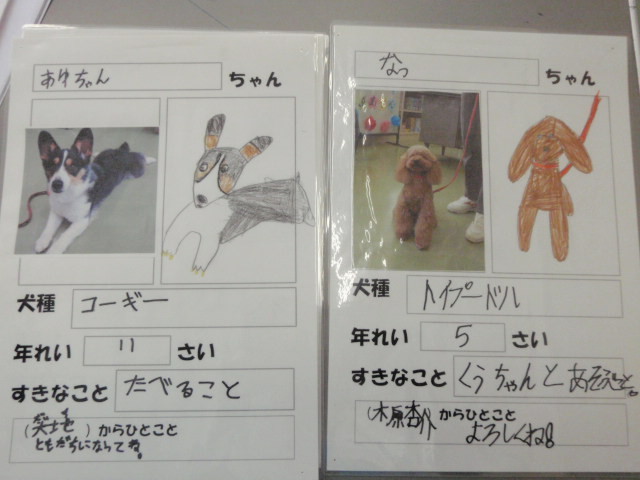 あゆちゃん ちゃん
犬種 コーギー
年れい 11 さい
すきなこと たべること
からひとこと
ともだちになってね。
なっ ちゃん
犬種 トイプードル
年れい 5 さい
すきなこと くうちゃんとあそぶこと。
(木原杏介 からひとこと
よろしくね!